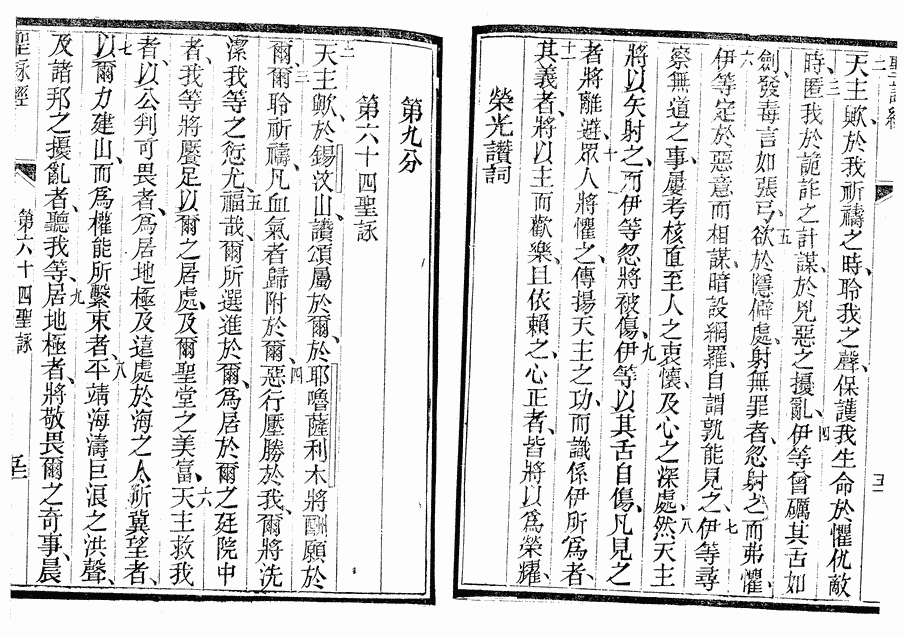 聖詠經
五一
二 天主歟於我祈禱之時、聆我之聲、保護我生命於懼仇敵
時、三 匿我於詭詐之計謀、於兇惡之擾亂、四 伊等曾礪其舌如
劍、發毒言如張弓、五 欲於隱僻處、射無罪者、忽射之、而弗懼、
六 伊等定於惡意而相謀、暗設網羅、自謂孰能見之、七 伊等尋
察無道之事、屢考核直至人之衷懷、及心之深處、八 然天主
將以矢射之、而伊等忽將被傷、九 伊等以其舌自傷、凡見之
者將離避、十 眾人將懼之、傳揚天主之功、而識係伊所為者、
十一 其義者、將以主而歡樂、且依賴之、心正者、皆將以為榮耀、
榮光讚詞
第九分
第六十四聖詠
二 天主歟、於錫汶山、讚頌屬於爾、於耶嚕薩利木將酬願於
爾、三 爾聆祈禱、凡血氣者歸附於爾、四 惡行壓勝於我、爾將洗
潔我等之愆尤、五 福哉爾所選進於爾、為居於爾之庭院中
者、我等將饜足以爾之居處、及爾聖堂之美富、六 天主救我
者、以公判可畏者、為居地極及遠處於海之人所冀望者、
七 以爾力建山、而為權能所繫束者、八 平靖海濤巨浪之洪聲、
及諸邦之擾亂者、聽我等、九 居地極者、將敬畏爾之奇事、晨
聖詠經
第六十四聖詠